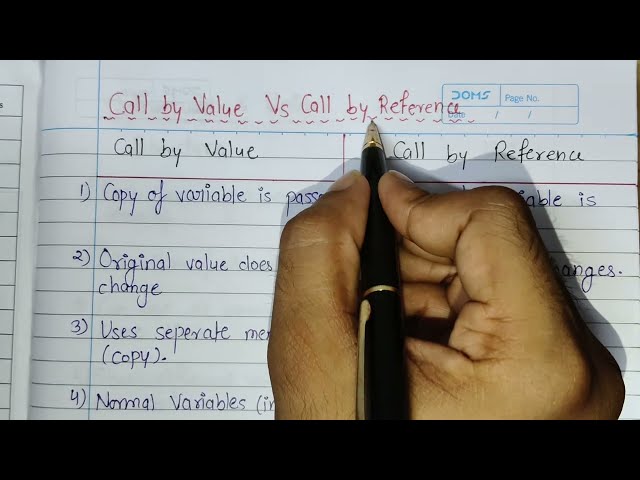 Call by Value Vs Call by Reference
DOMS Page No.
Date / /
Call by Value Call by Reference
1) Copy of variable is passe variable is
2) Original value does changes.
change
3) Uses seperate me
(copy).
4) Normal Variables (in
s